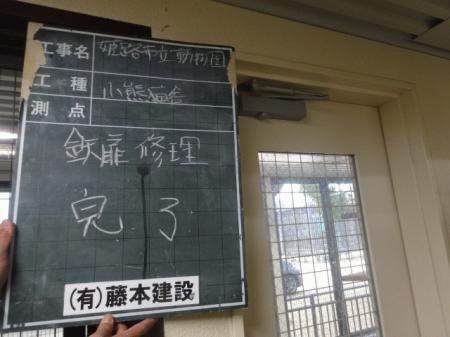 工事名 姫路市立動物園
工種 小熊猫舎
測点
鉄扉修理
完了
(有)藤本建設